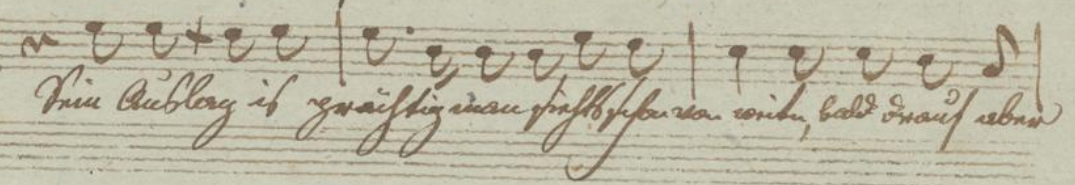 Sein Auslag is prächtig, man siehts schon von weiten, bald drauf aber